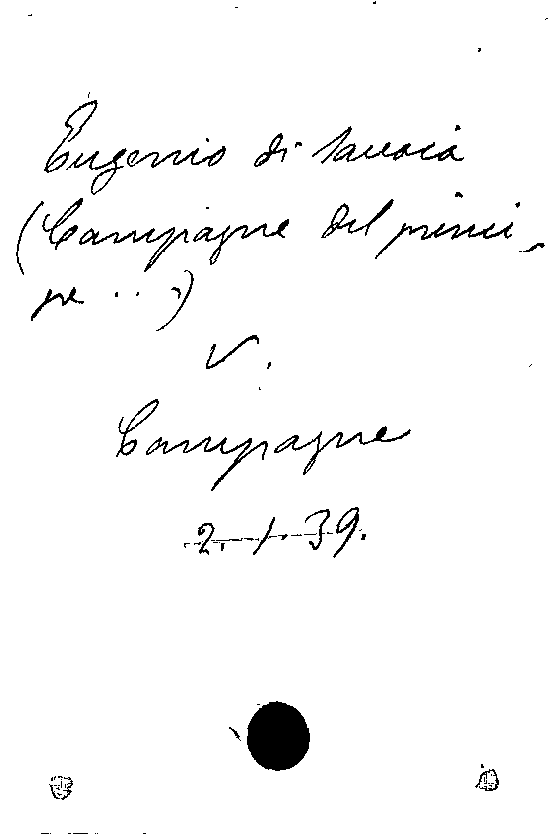 Eugenio di Savoia
(Campagne del princi-
pe ...)
V.
Campagne
2. 1. 39.